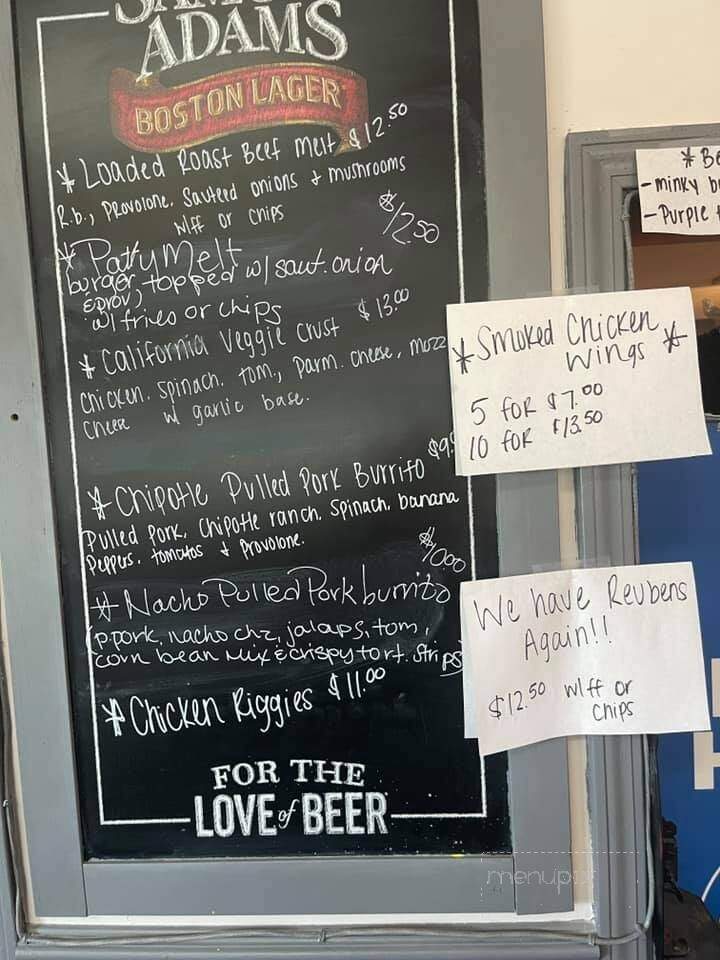 ADAMS
BOSTON LAGER
* Loaded Roast Beef Melt $12.50
R.b., Provolone, Sauteed onions & mushrooms
w/ff or chips
* Patty Melt $12.50
burger topped w/ saut. onion
& prov)
w/ fries or chips
* California Veggie Crust $13.00
Chicken, Spinach, Tom., Parm. cheese, Mozz
Cheese w/ garlic base.
* Chipotle Pulled Pork Burrito
Pulled Pork, Chipotle ranch, Spinach, banana
Peppers, tomatos & Provolone.
$10.00
* Nacho Pulled Pork burrito
(p.pork, nacho chz, jalaps, tom,
corn bean mix & crispy tort. strips
* Chicken Riggies $11.00
FOR THE
LOVE of BEER
* Smoked Chicken
Wings *
5 FOR $7.00
10 FOR $13.50
We have Reubens
Again!!
$12.50 w/ff or
chips
- minky
- Purple
menupix